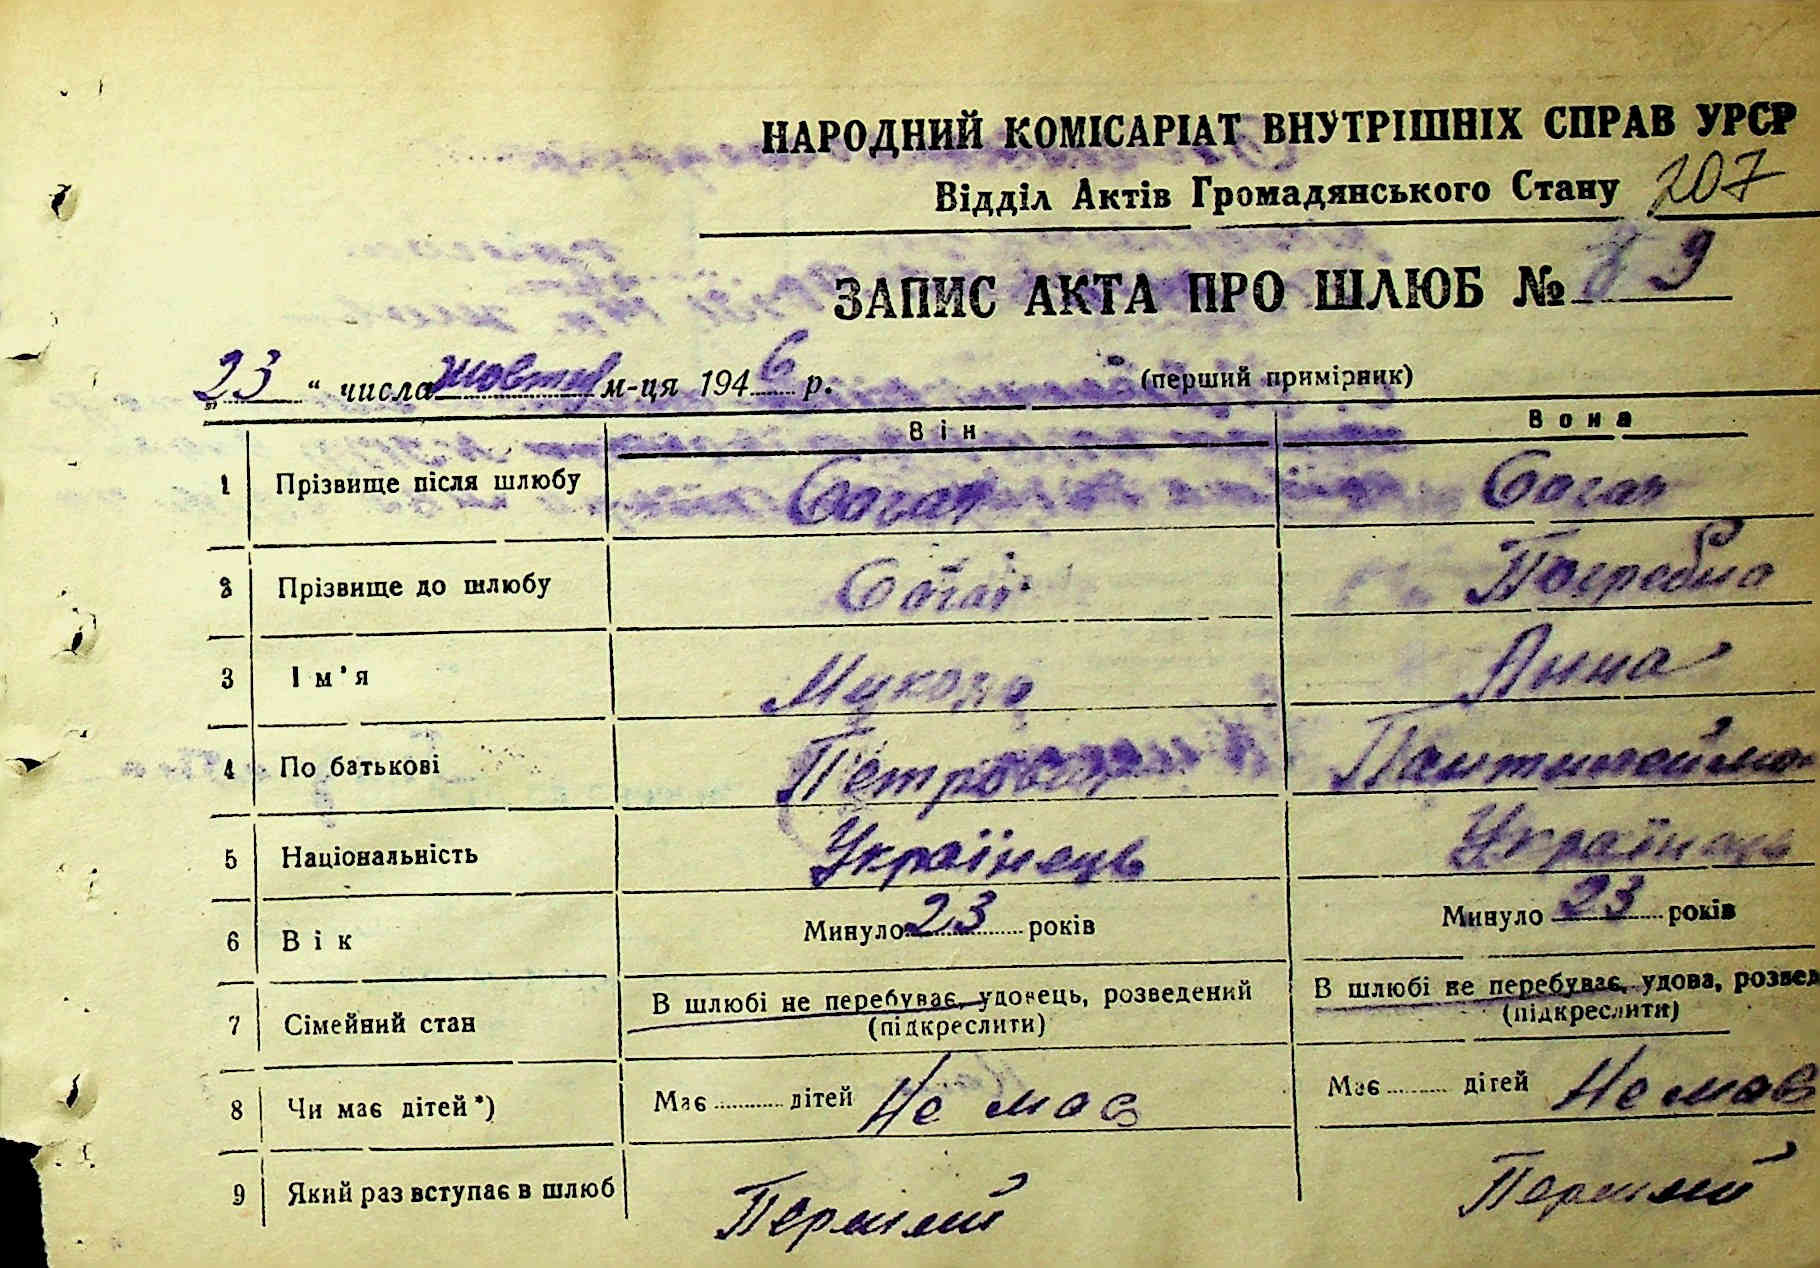 НАРОДНИЙ КОМІСАРІАТ ВНУТРІШНІХ СПРАВ УРСР
Відділ Актів Громадянського Стану 207
ЗАПИС АКТА ПРО ШЛЮБ № 89
„23“ числа жовтня м-ця 1946 р. (перший примірник)
Він Вона
1 Прізвище після шлюбу
2 Прізвище до шлюбу Погребна
3 Ім'я Микола Анна
4 По батькові Петрович
5 Національність Українець Українець
6 Вік Минуло 23 років Минуло 23 років
7 Сімейний стан В шлюбі не перебуває, удовець, розведений В шлюбі не перебуває, удова, розвед
(підкреслити) (підкреслити)
8 Чи має дітей*) Має дітей Не має Має дітей Не має
9 Який раз вступає в шлюб Перший Перший